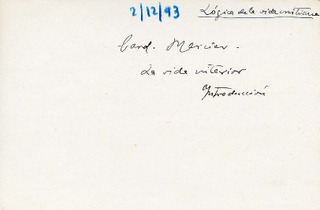 2/12/93
Lógica de la vida cristiana
Card. Mercier.
La vida interior
Introducción